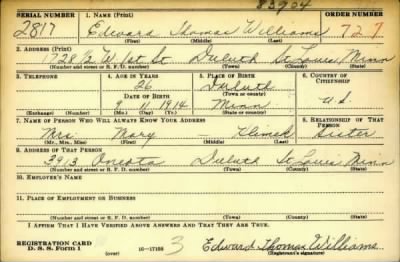 83924
SERIAL NUMBER 1. NAME (Print) ORDER NUMBER
2817 Edward Thomas Williams 727
(First) (Middle) (Last)
2. ADDRESS (Print)
728 1/2 W 1st St Duluth St Louis Minn
(Number and street or R. F. D. number) (Town) (County) (State)
3. TELEPHONE 4. AGE IN YEARS 5. PLACE OF BIRTH 6. COUNTRY OF CITIZENSHIP
26 Duluth
DATE OF BIRTH (Town or county)
9 11 1914 Minn U.S.
(Exchange) (Number) (Mo.) (Day) (Yr.) (State or country)
7. NAME OF PERSON WHO WILL ALWAYS KNOW YOUR ADDRESS 8. RELATIONSHIP OF THAT PERSON
Mrs Mary — Klimek Sister
(Mr., Mrs., Miss) (First) (Middle) (Last)
9. ADDRESS OF THAT PERSON
3913 Oneota Duluth St Louis Minn
(Number and street or R. F. D. number) (Town) (County) (State)
10. EMPLOYER'S NAME
11. PLACE OF EMPLOYMENT OR BUSINESS
(Number and street or R. F. D. number) (Town) (County) (State)
I AFFIRM THAT I HAVE VERIFIED ABOVE ANSWERS AND THAT THEY ARE TRUE.
REGISTRATION CARD
D. S. S. Form 1 16—17105 3 Edward Thomas Williams
(over) (Registrant's signature)